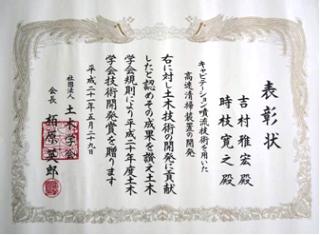 表彰状
吉村雅宏殿
時枝寛之殿
キャビテーション噴流技術を用いた
高速清掃装置の開発
右に対し土木技術の開発に貢献
したと認めその成果を讃え土木
学会規則により平成二十年度土木
学会技術開発賞を贈ります
平成二十一年五月二十九日
社団法人 土木学会
会長 栢原英郎